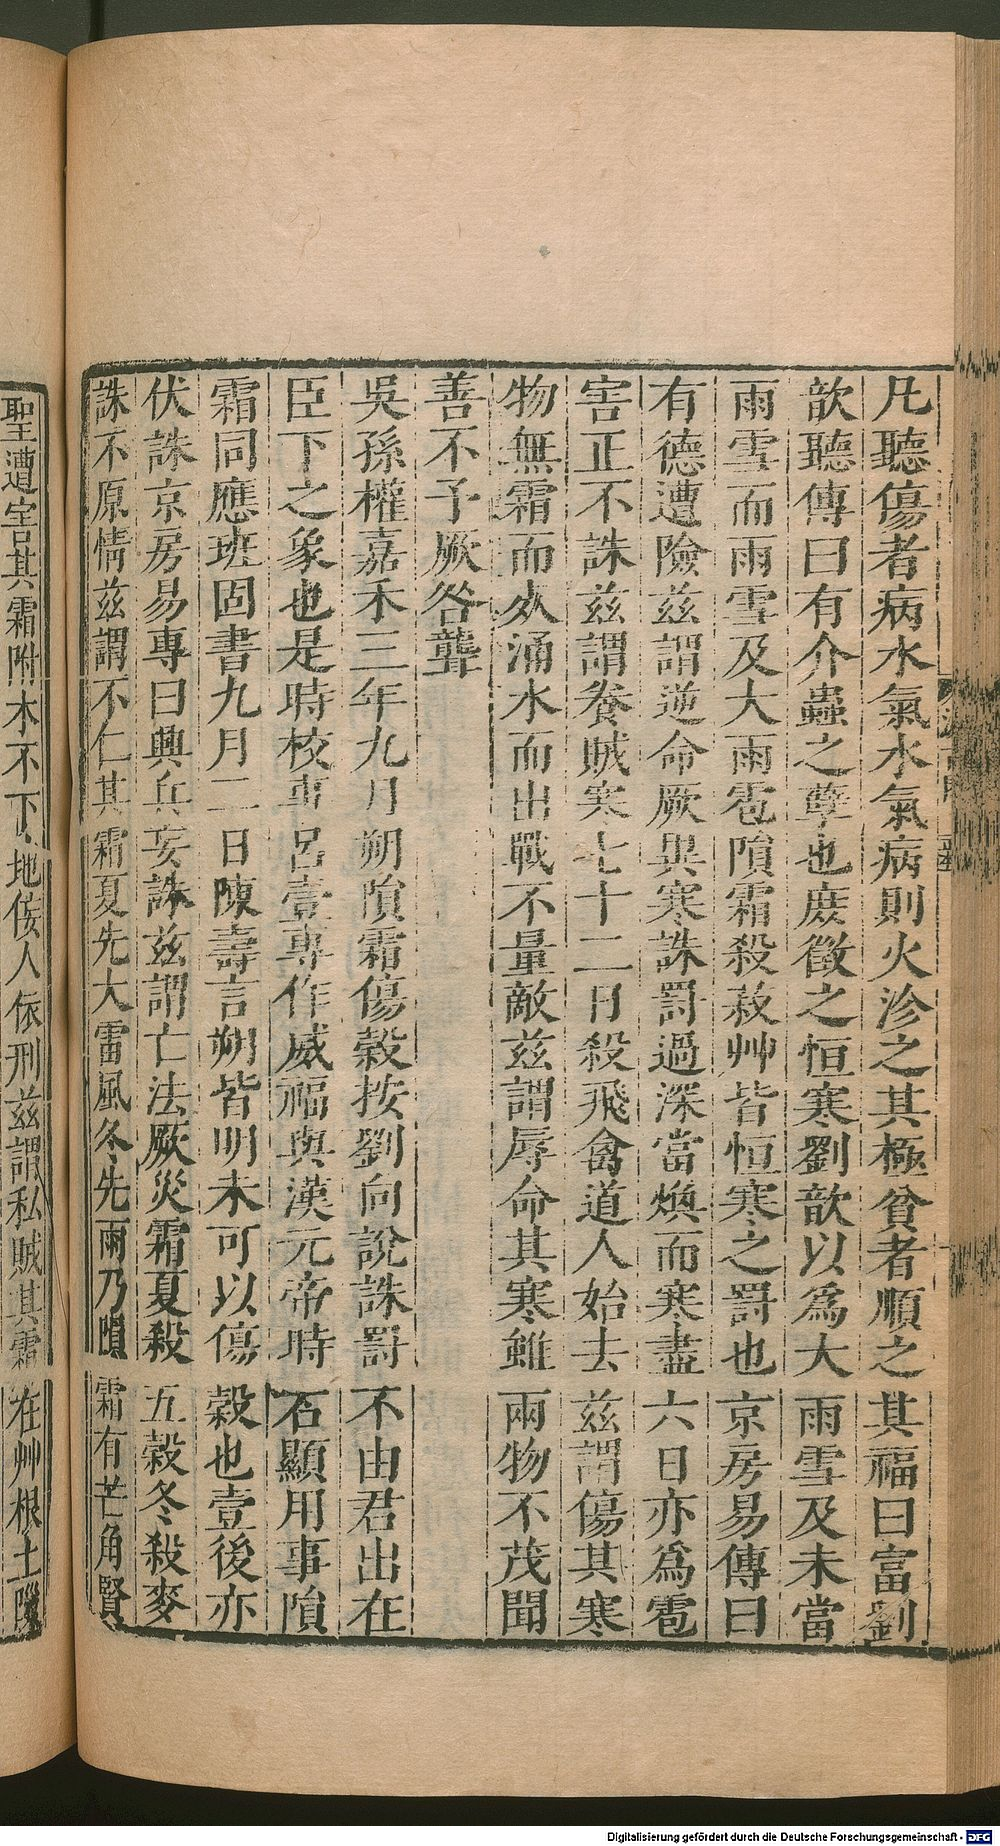 凡聽傷者病水氣水氣病則火沴之其極貧者順之其福曰富劉
歆聽傳曰有介蟲之孽也庶徵之恒寒劉歆以爲大雨雪及未當
雨雪而雨雪及大雨雹隕霜殺菽艸皆恒寒之罰也京房易傳曰
有德遭險茲謂逆命厥異寒誅罰過深當燠而寒盡六日亦爲雹
害正不誅茲謂養賊寒七十二日殺飛禽道人始去茲謂傷其寒
物無霜而死涌水而出戰不量敵茲謂辱命其寒雖雨物不茂聞
善不予厥咎聾
吳孫權嘉禾三年九月朔隕霜傷穀按劉向說誅罰不由君出在
臣下之象也是時校事呂壹專作威福與漢元帝時石顯用事隕
霜同應班固書九月二日陳壽言朔皆明未可以傷穀也壹後亦
伏誅京房易專曰興兵妄誅茲謂亡法厥災霜夏殺五穀冬殺麥
誅不原情茲謂不仁其霜夏先大雷風冬先雨乃隕霜有芒角賢
聖遭害其霜附木不下地佞人依刑茲謂私賊其霜在艸根土隙
Digitalisierung gefördert durch die Deutsche Forschungsgemeinschaft - DFG